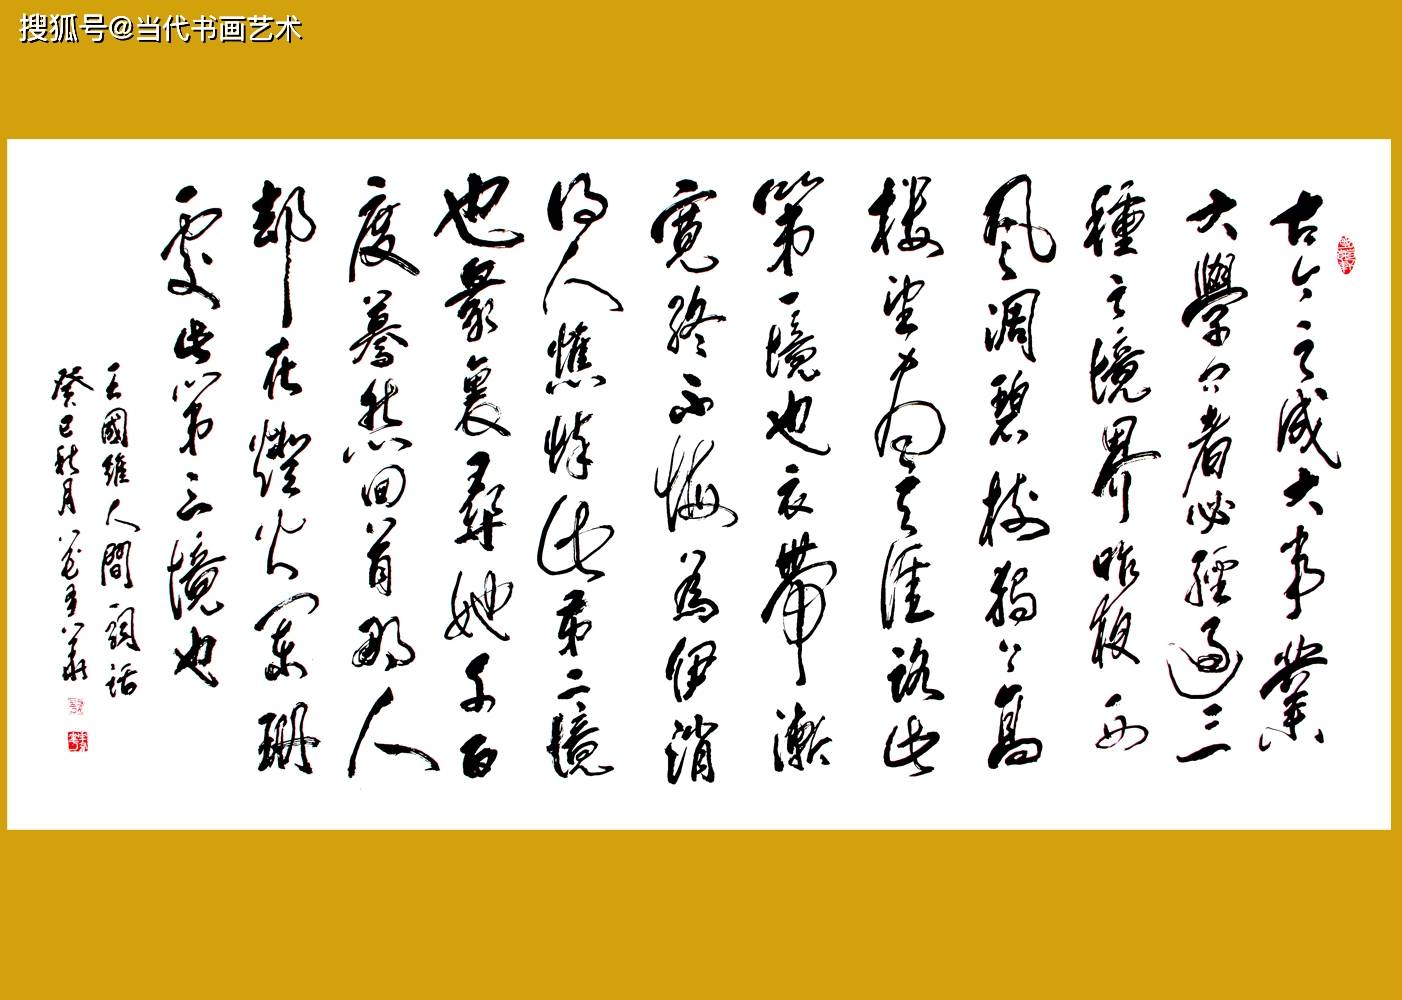 搜狐号@当代书画艺术
古今之成大事業
大學問者必經過三
種之境界昨夜西
風凋碧樹獨上高
樓望盡天涯路此
第一境也衣帶漸
寬終不悔為伊消
得人憔悴此第二境
也眾裏尋她千百
度驀然回首那人
却在燈火闌珊
處此第三境也
王國維人間詞話
癸巳秋月